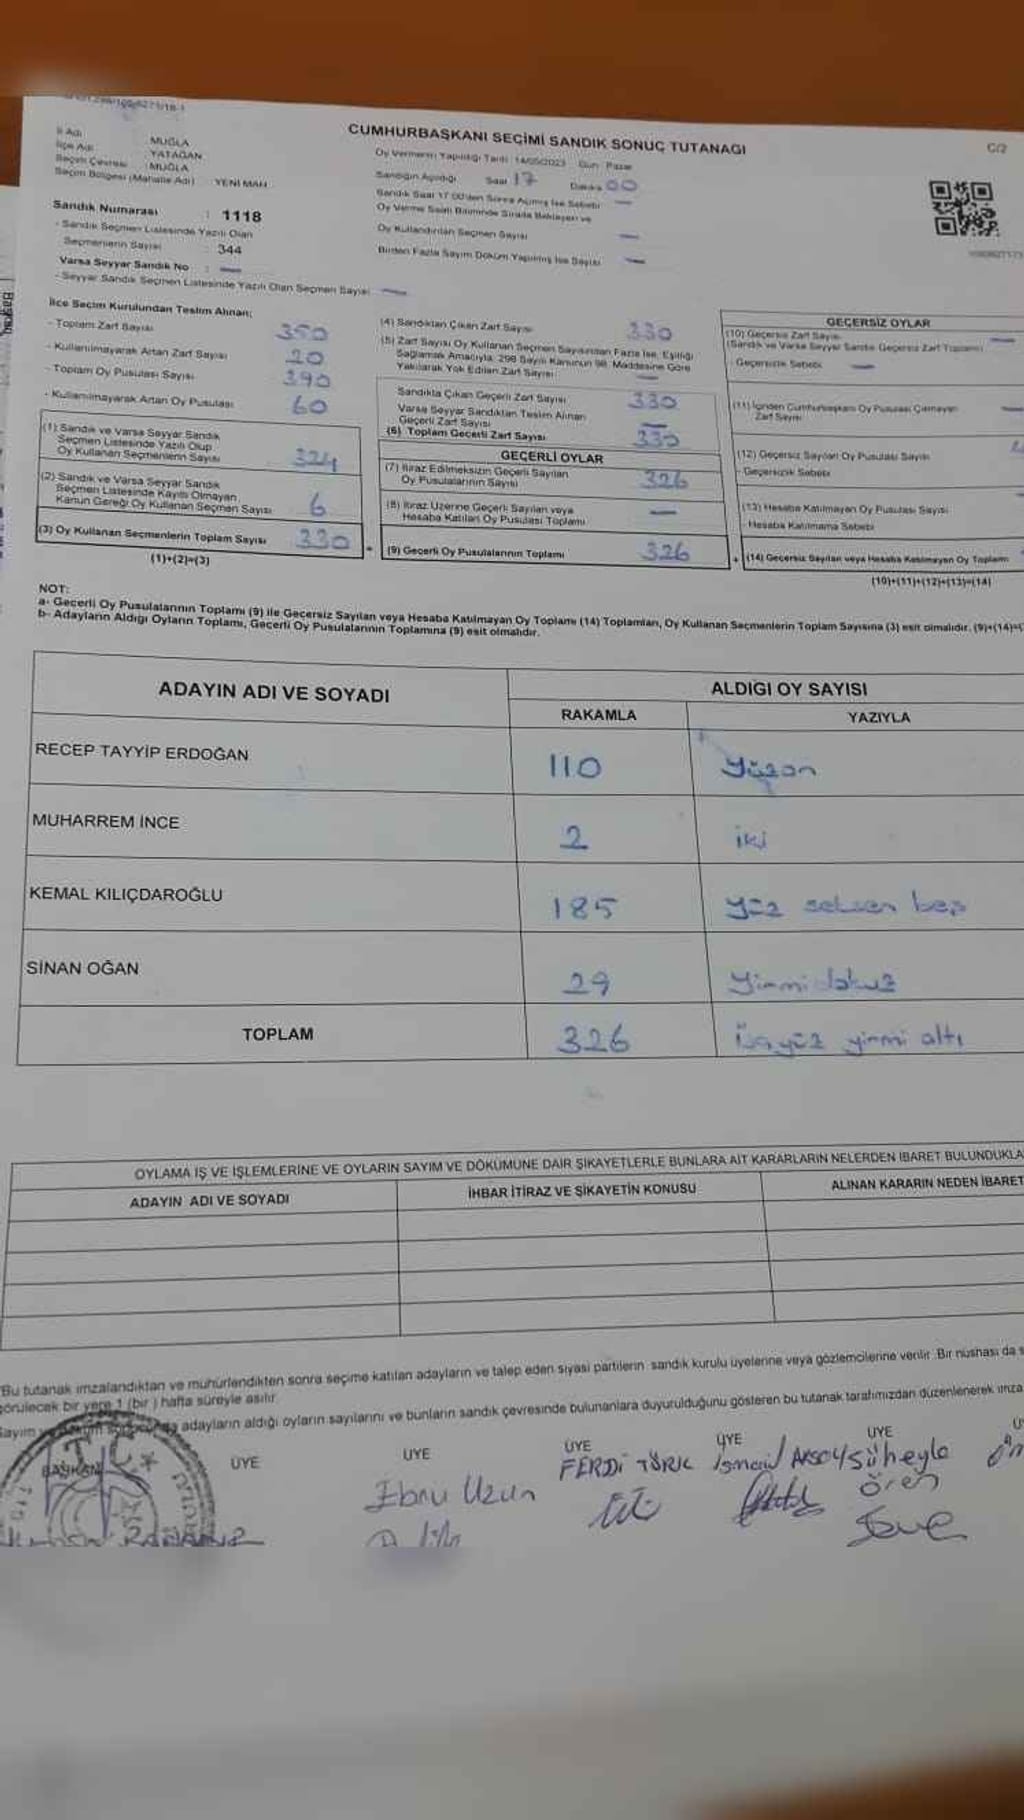 CUMHURBAŞKANI SEÇİMİ SANDIK SONUÇ TUTANAĞI
C/2
İl Adı : MUĞLA
İlçe Adı : YATAĞAN
Seçim Çevresi : MUĞLA
Seçim Bölgesi (Mahalle Adı) : YENİ MAH
Oy Vermenin Yapıldığı Tarih 14/05/2023 Gün: Pazar
Sandığın Açıldığı Saat 17 Dakika 00
Sandık Saat 17.00'den Sonra Açılmış İse Sebebi —
Oy Verme Saati Bitiminde Sırada Bekleyen ve
Oy Kullandırılan Seçmen Sayısı —
Birden Fazla Sayım Döküm Yapılmış İse Sayısı —
Sandık Numarası : 1118
- Sandık Seçmen Listesinde Yazılı Olan
Seçmenlerin Sayısı : 344
Varsa Seyyar Sandık No : —
- Seyyar Sandık Seçmen Listesinde Yazılı Olan Seçmen Sayısı —
İlçe Seçim Kurulundan Teslim Alınan;
- Toplam Zarf Sayısı 350
- Kullanılmayarak Artan Zarf Sayısı 20
- Toplam Oy Pusulası Sayısı 390
- Kullanılmayarak Artan Oy Pusulası 60
(1) Sandık ve Varsa Seyyar Sandık
Seçmen Listesinde Yazılı Olup
Oy Kullanan Seçmenlerin Sayısı 324
(2) Sandık ve Varsa Seyyar Sandık
Seçmen Listesinde Kayıtlı Olmayan
Kanun Gereği Oy Kullanan Seçmen Sayısı 6
(3) Oy Kullanan Seçmenlerin Toplam Sayısı 330
(1)+(2)=(3)
(4) Sandıktan Çıkan Zarf Sayısı 330
(5) Zarf Sayısı Oy Kullanan Seçmen Sayısından Fazla İse, Eşitliği
Sağlamak Amacıyla, 298 Sayılı Kanunun 98. Maddesine Göre
Yakılarak Yok Edilen Zarf Sayısı —
Sandıkta Çıkan Geçerli Zarf Sayısı 330
Varsa Seyyar Sandıktan Teslim Alınan
Geçerli Zarf Sayısı —
(6) Toplam Geçerli Zarf Sayısı 330
GEÇERLİ OYLAR
(7) İtiraz Edilmeksizin Geçerli Sayılan
Oy Pusulalarının Sayısı 326
(8) İtiraz Üzerine Geçerli Sayılan veya
Hesaba Katılan Oy Pusulası Toplamı —
(9) Geçerli Oy Pusulalarının Toplamı 326
GEÇERSİZ OYLAR
(10) Geçersiz Zarf Sayısı
(Sandık ve Varsa Seyyar Sandık Geçersiz Zarf Toplamı) —
Geçersizlik Sebebi —
(11) İçinden Cumhurbaşkanı Oy Pusulası Çıkmayan
Zarf Sayısı —
(12) Geçersiz Sayılan Oy Pusulası Sayısı
- Geçersizlik Sebebi
(13) Hesaba Katılmayan Oy Pusulası Sayısı
- Hesaba Katılmama Sebebi
(14) Geçersiz Sayılan veya Hesaba Katılmayan Oy Toplamı
(10)+(11)+(12)+(13)=(14)
NOT:
a- Geçerli Oy Pusulalarının Toplamı (9) ile Geçersiz Sayılan veya Hesaba Katılmayan Oy Toplamı (14) Toplamları, Oy Kullanan Seçmenlerin Toplam Sayısına (3) eşit olmalıdır. (9)+(14)=(
b- Adayların Aldığı Oyların Toplamı, Geçerli Oy Pusulalarının Toplamına (9) eşit olmalıdır.
ADAYIN ADI VE SOYADI
ALDIĞI OY SAYISI
RAKAMLA YAZIYLA
RECEP TAYYİP ERDOĞAN 110 Yüzon
MUHARREM İNCE 2 iki
KEMAL KILIÇDAROĞLU 185 yüz seksen beş
SİNAN OĞAN 29 Yirmi dokuz
TOPLAM 326 üçyüz yirmi altı
OYLAMA İŞ VE İŞLEMLERİNE VE OYLARIN SAYIM VE DÖKÜMÜNE DAİR ŞİKAYETLERLE BUNLARA AİT KARARLARIN NELERDEN İBARET BULUNDUKLA
ADAYIN ADI VE SOYADI
İHBAR İTİRAZ VE ŞİKAYETİN KONUSU
ALINAN KARARIN NEDEN İBARET
Bu tutanak imzalandıktan ve mühürlendikten sonra seçime katılan adayların ve talep eden siyasi partilerin sandık kurulu üyelerine veya gözlemcilerine verilir. Bir nüshası da s
görülecek bir yere 1 (bir) hafta süreyle asılır.
adayların aldığı oyların sayılarını ve bunların sandık çevresinde bulunanlara duyurulduğunu gösteren bu tutanak tarafımızdan düzenlenerek imza
BAŞKAN ÜYE ÜYE ÜYE ÜYE ÜYE
T.C.
Ebru Uzun FERDİ TÜRK İsmail AKSOY Süheyla
Ören